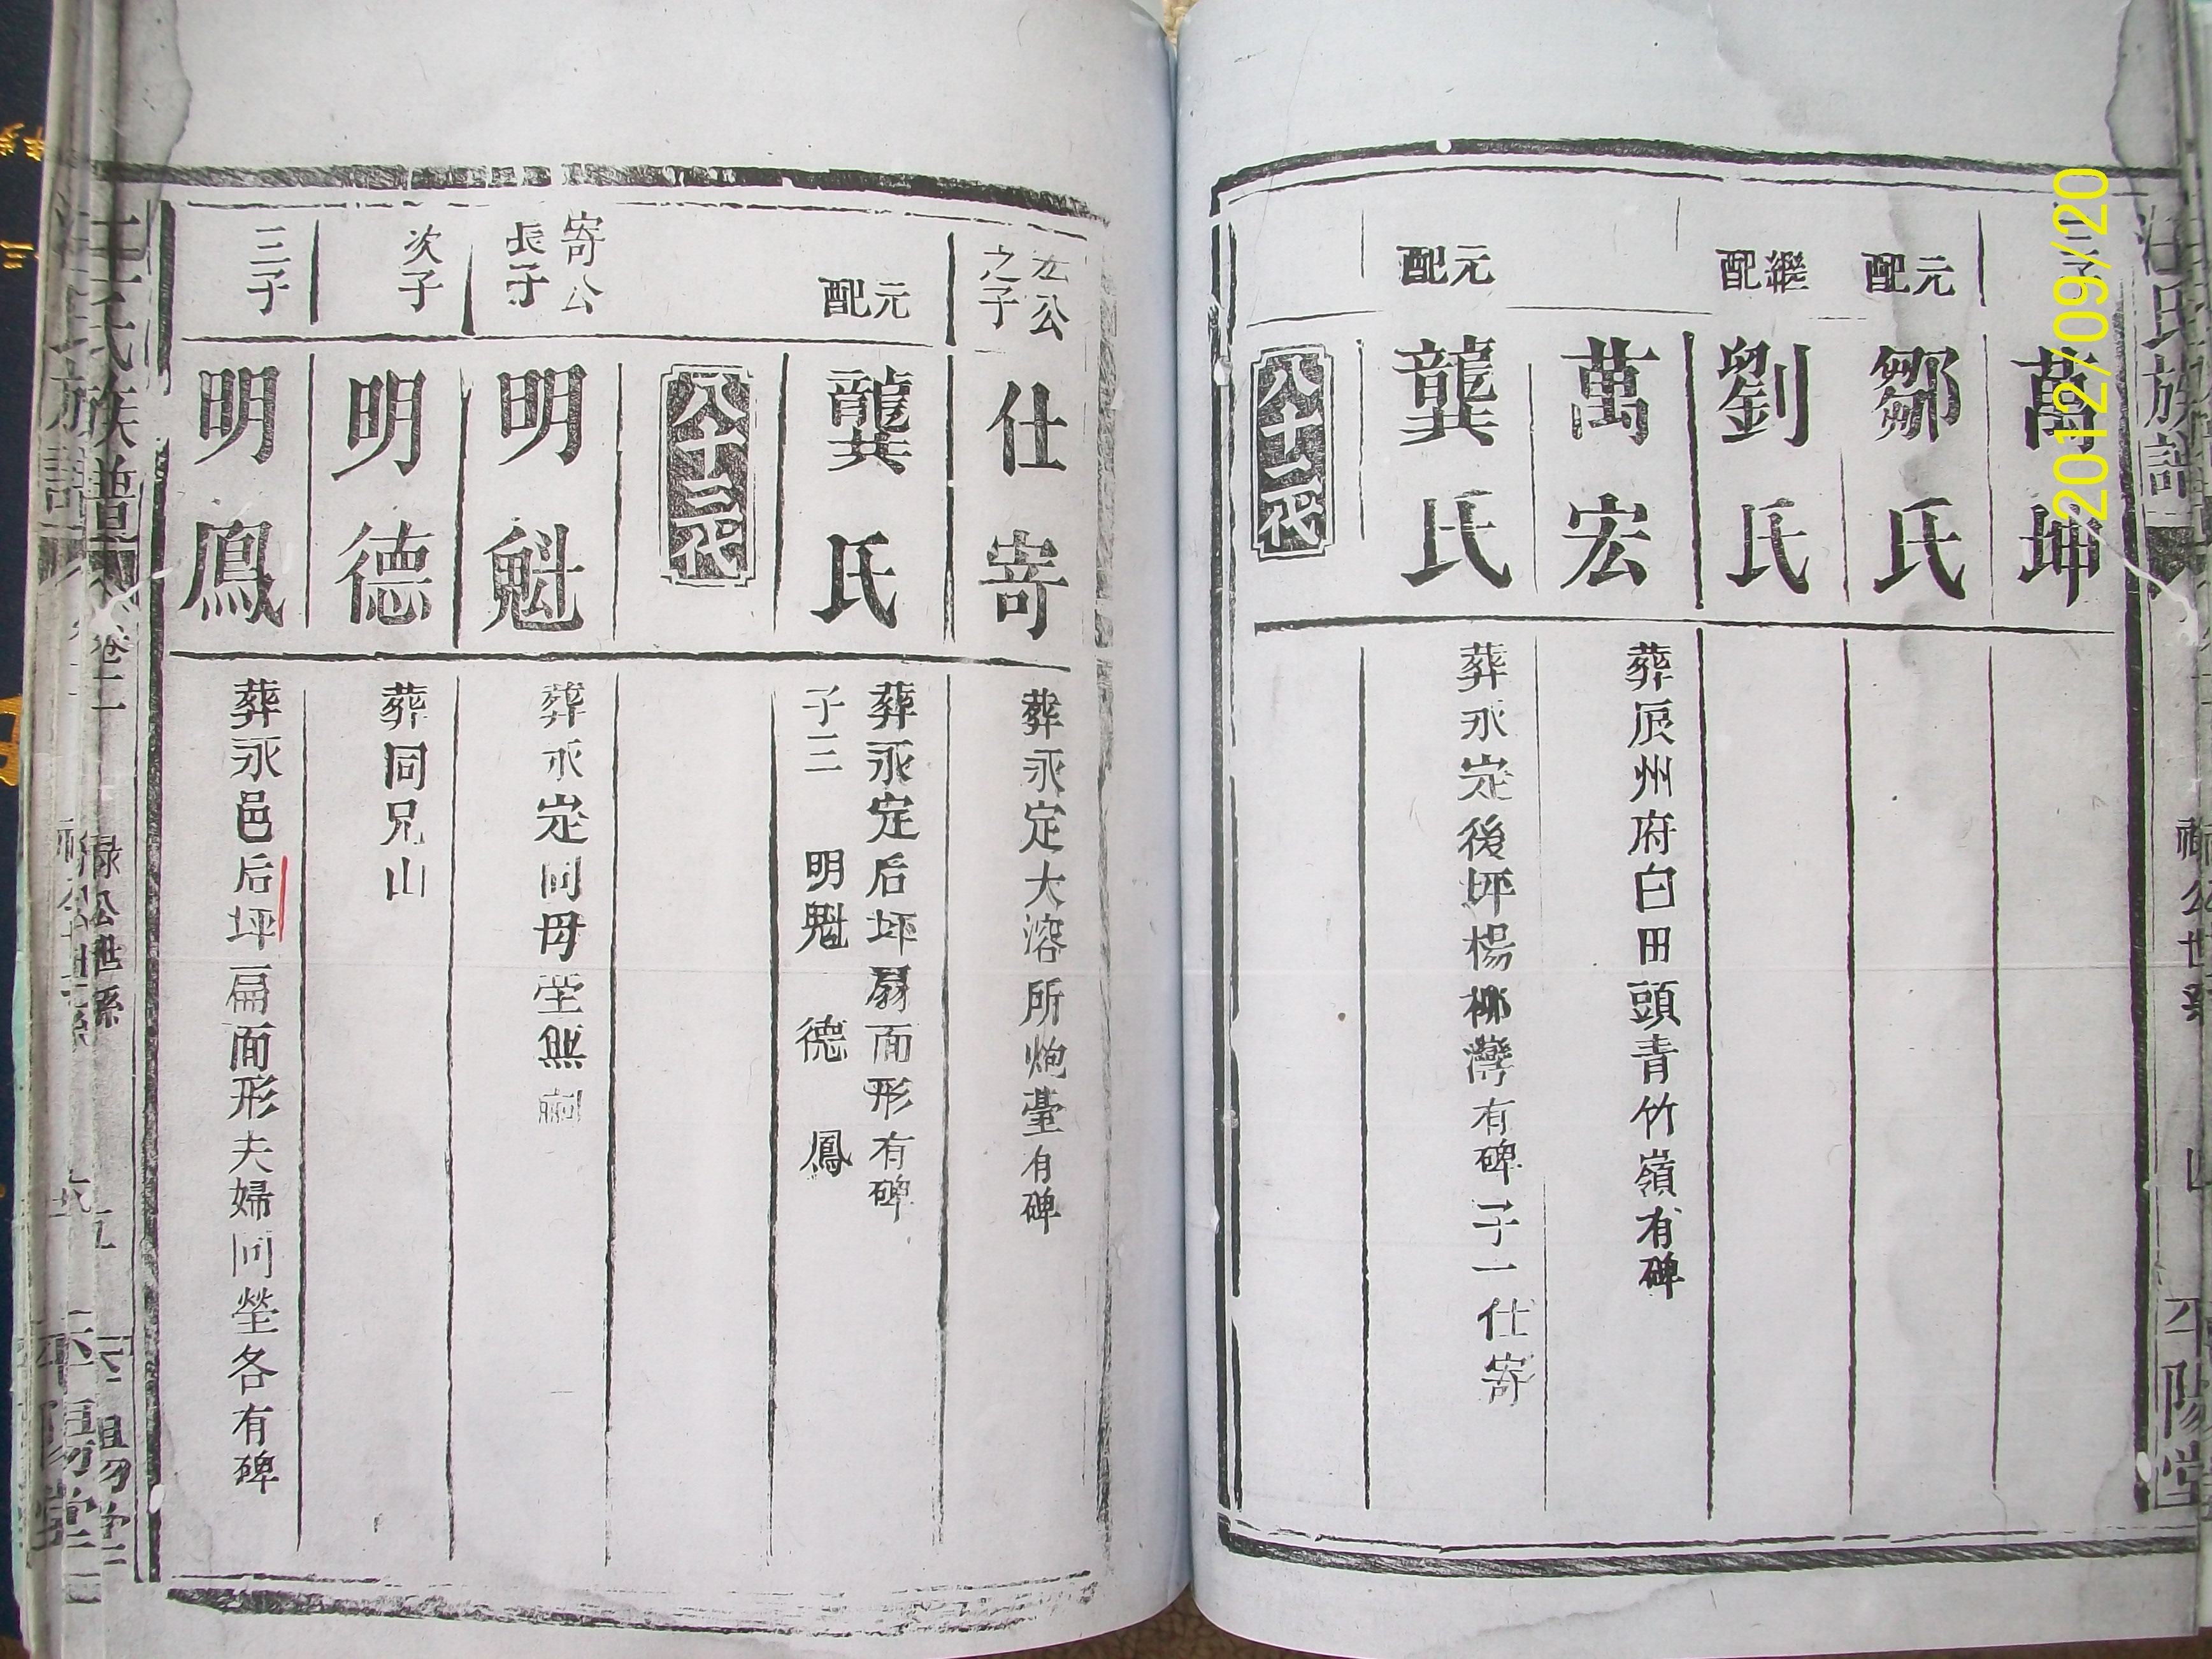 2012/09/20
汪氏族譜
公世系
四
平陽堂
萬坤
元配
鄒氏
繼配
劉氏
萬宏
葬辰州府白田頭青竹嶺有碑
元配
龔氏
葬永定後坪楊柳灣有碑一子一仕寄
八十二代
公
之子
仕寄
葬永定大溶所炮臺有碑
元配
龔氏
葬永定后坪扇面形有碑
子三 明魁 德 鳳
八十三代
寄公
長子
明魁
葬永定同母塋無嗣
次子
明德
葬同兄山
三子
明鳳
葬永邑后坪扁面形夫婦同塋各有碑
汪氏族譜
卷二
祿公世系
五
平陽堂